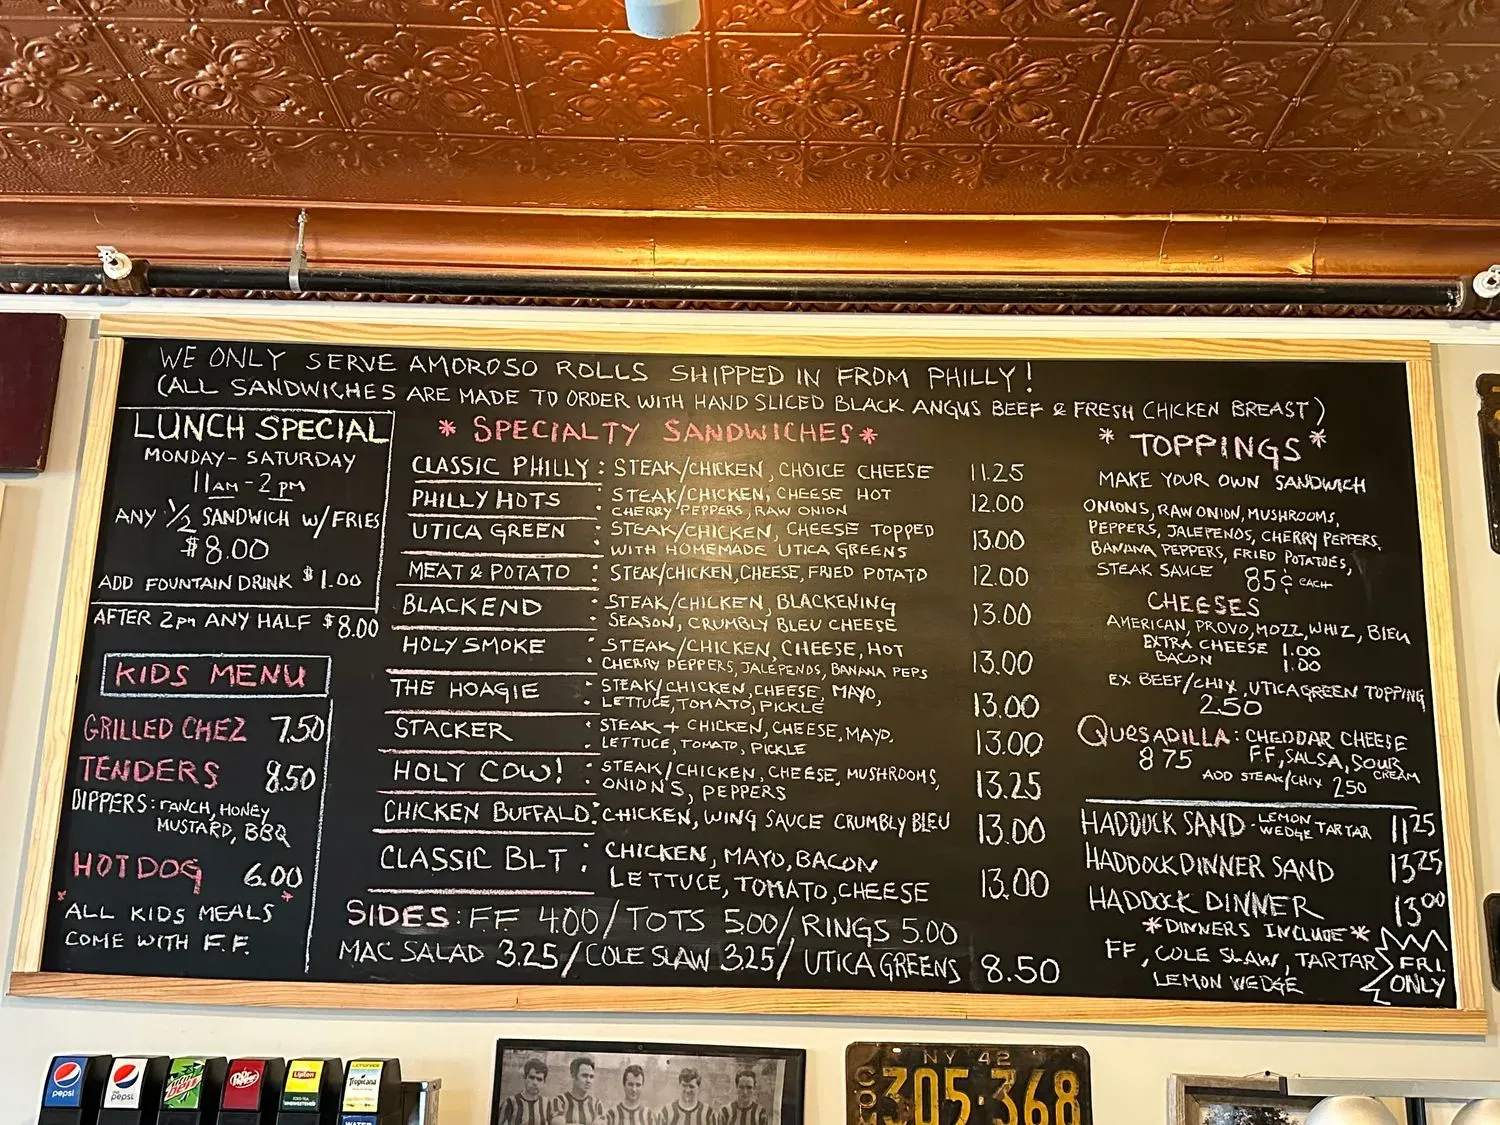 WE ONLY SERVE AMOROSO ROLLS SHIPPED IN FROM PHILLY!
(ALL SANDWICHES ARE MADE TO ORDER WITH HAND SLICED BLACK ANGUS BEEF & FRESH CHICKEN BREAST)
LUNCH SPECIAL
MONDAY-SATURDAY
11AM-2PM
ANY 1/2 SANDWICH W/FRIES
$8.00
ADD FOUNTAIN DRINK $1.00
AFTER 2PM ANY HALF $8.00
KIDS MENU
GRILLED CHEZ 7.50
TENDERS 8.50
DIPPERS: RANCH, HONEY
MUSTARD, BBQ
HOT DOG 6.00
*ALL KIDS MEALS*
COME WITH F.F.
* SPECIALTY SANDWICHES *
CLASSIC PHILLY: STEAK/CHICKEN, CHOICE CHEESE 11.25
PHILLY HOTS : STEAK/CHICKEN, CHEESE HOT 12.00
CHERRY PEPPERS, RAW ONION
UTICA GREEN : STEAK/CHICKEN, CHEESE TOPPED 13.00
WITH HOMEMADE UTICA GREENS
MEAT & POTATO : STEAK/CHICKEN, CHEESE, FRIED POTATO 12.00
BLACKEND : STEAK/CHICKEN, BLACKENING 13.00
SEASON, CRUMBLY BLEU CHEESE
HOLY SMOKE : STEAK/CHICKEN, CHEESE, HOT 13.00
CHERRY PEPPERS, JALEPENOS, BANANA PEPS
THE HOAGIE : STEAK/CHICKEN, CHEESE, MAYO, 13.00
LETTUCE, TOMATO, PICKLE
STACKER : STEAK + CHICKEN, CHEESE, MAYO, 13.00
LETTUCE, TOMATO, PICKLE
HOLY COW! : STEAK/CHICKEN, CHEESE, MUSHROOMS, 13.25
ONIONS, PEPPERS
CHICKEN BUFFALO: CHICKEN, WING SAUCE CRUMBLY BLEU 13.00
CLASSIC BLT : CHICKEN, MAYO, BACON 13.00
LETTUCE, TOMATO, CHEESE
SIDES: F.F. 4.00/TOTS 5.00/RINGS 5.00
MAC SALAD 3.25/COLE SLAW 3.25/UTICA GREENS 8.50
* TOPPINGS *
MAKE YOUR OWN SANDWICH
ONIONS, RAW ONION, MUSHROOMS,
PEPPERS, JALEPENOS, CHERRY PEPPERS,
BANANA PEPPERS, FRIED POTATOES,
STEAK SAUCE 85¢ EACH
CHEESES
AMERICAN, PROVO, MOZZ, WHIZ, BLEU
EXTRA CHEESE 1.00
BACON 1.00
EX BEEF/CHIX, UTICA GREEN TOPPING
2.50
QUESADILLA: CHEDDAR CHEESE
8 75 F.F., SALSA, SOUR
CREAM
ADD STEAK/CHIX 2.50
HADDOCK SAND - LEMON WEDGE TARTAR 11 25
HADDOCK DINNER SAND 13 25
HADDOCK DINNER 13 00
*DINNERS INCLUDE*
FF, COLE SLAW, TARTAR
LEMON WEDGE
FRI.
ONLY
pepsi
pepsi
Mtn Dew
Dr Pepper
Lipton
LEMONADE
Tropicana
WATER
NY 42
305·368